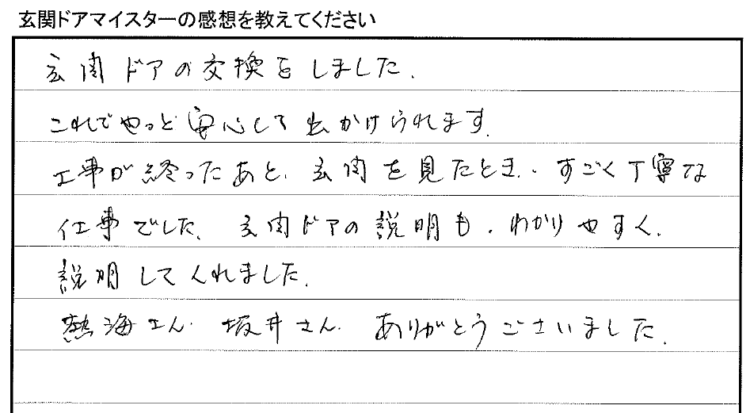 玄関ドアマイスターの感想を教えてください
玄関ドアの交換をしました.
これでやっと安心して出かけられます.
工事が終ったあと、玄関を見たとき、すごく丁寧な
仕事でした、玄関ドアの説明も、わかりやすく、
説明してくれました.
熱海さん、坂井さん、ありがとうございました.